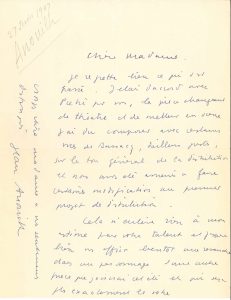 27 Nov 1947
Anouilh
Chère Madame
je regrette bien ce qui s'est
passé. J'étais d'accord avec
Piétri pour vous, la pièce changeant
de théâtre et de metteur en scène
j'ai dû composer avec certaines
vues de Barsacq, d'ailleurs justes,
sur le ton général de la distribution
et nous avons été amenés à faire
certaines modifications au premier
projet de distribution.
Cela n'enlève rien à mon
estime pour votre talent et j'espère
bien vous offrir bientôt une revanche
dans un personnage d'une autre
pièce que
plus exactement le vôtre
Croyez chère madame à mes sentiments
Jean Anouilh